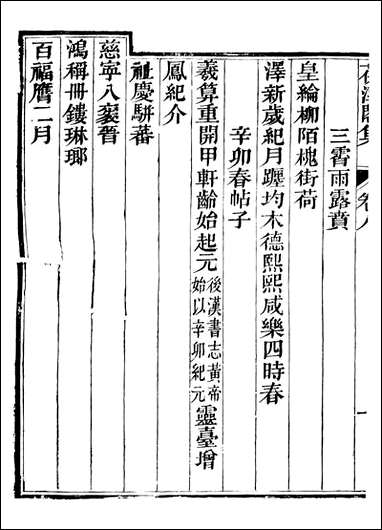 三霄雨露賁
皇綸柳陌槐街荷
澤新歲紀月躔均木德熙熙咸樂四時春
辛卯春帖子
羲算重開甲軒齡始起元後漢書志黃帝始以辛卯紀元靈臺增
鳳紀介
祉慶駢蕃
慈寧八袠晉
鴻稱冊鏤琳瑯
百福膺二月